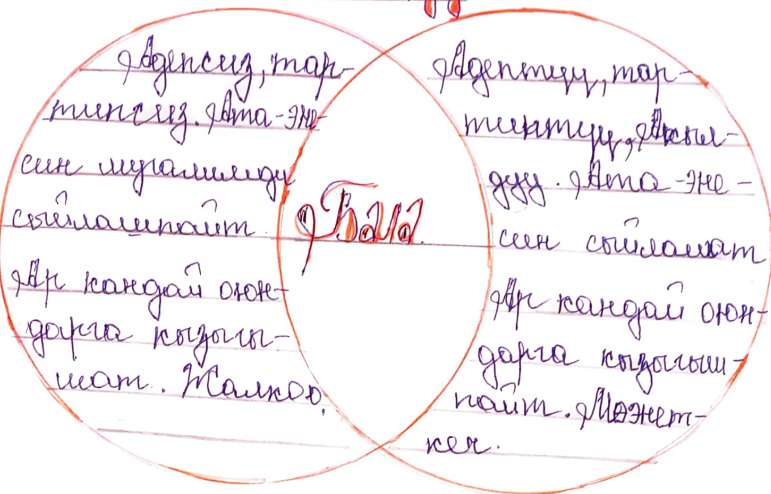 Адепсиз, тар-
типсиз. Ата-эне-
син мугалимди
сыйлашпайт.
Ар кандай оюн-
дарга кызыгы-
шат. Жалкоо.
Бала
Адептүү, тар-
типтүү, Акыл-
дуу. Ата-эне-
син сыйлашат
Ар кандай оюн-
дарга кызыгыш-
пайт. Мээнет-
кеч.